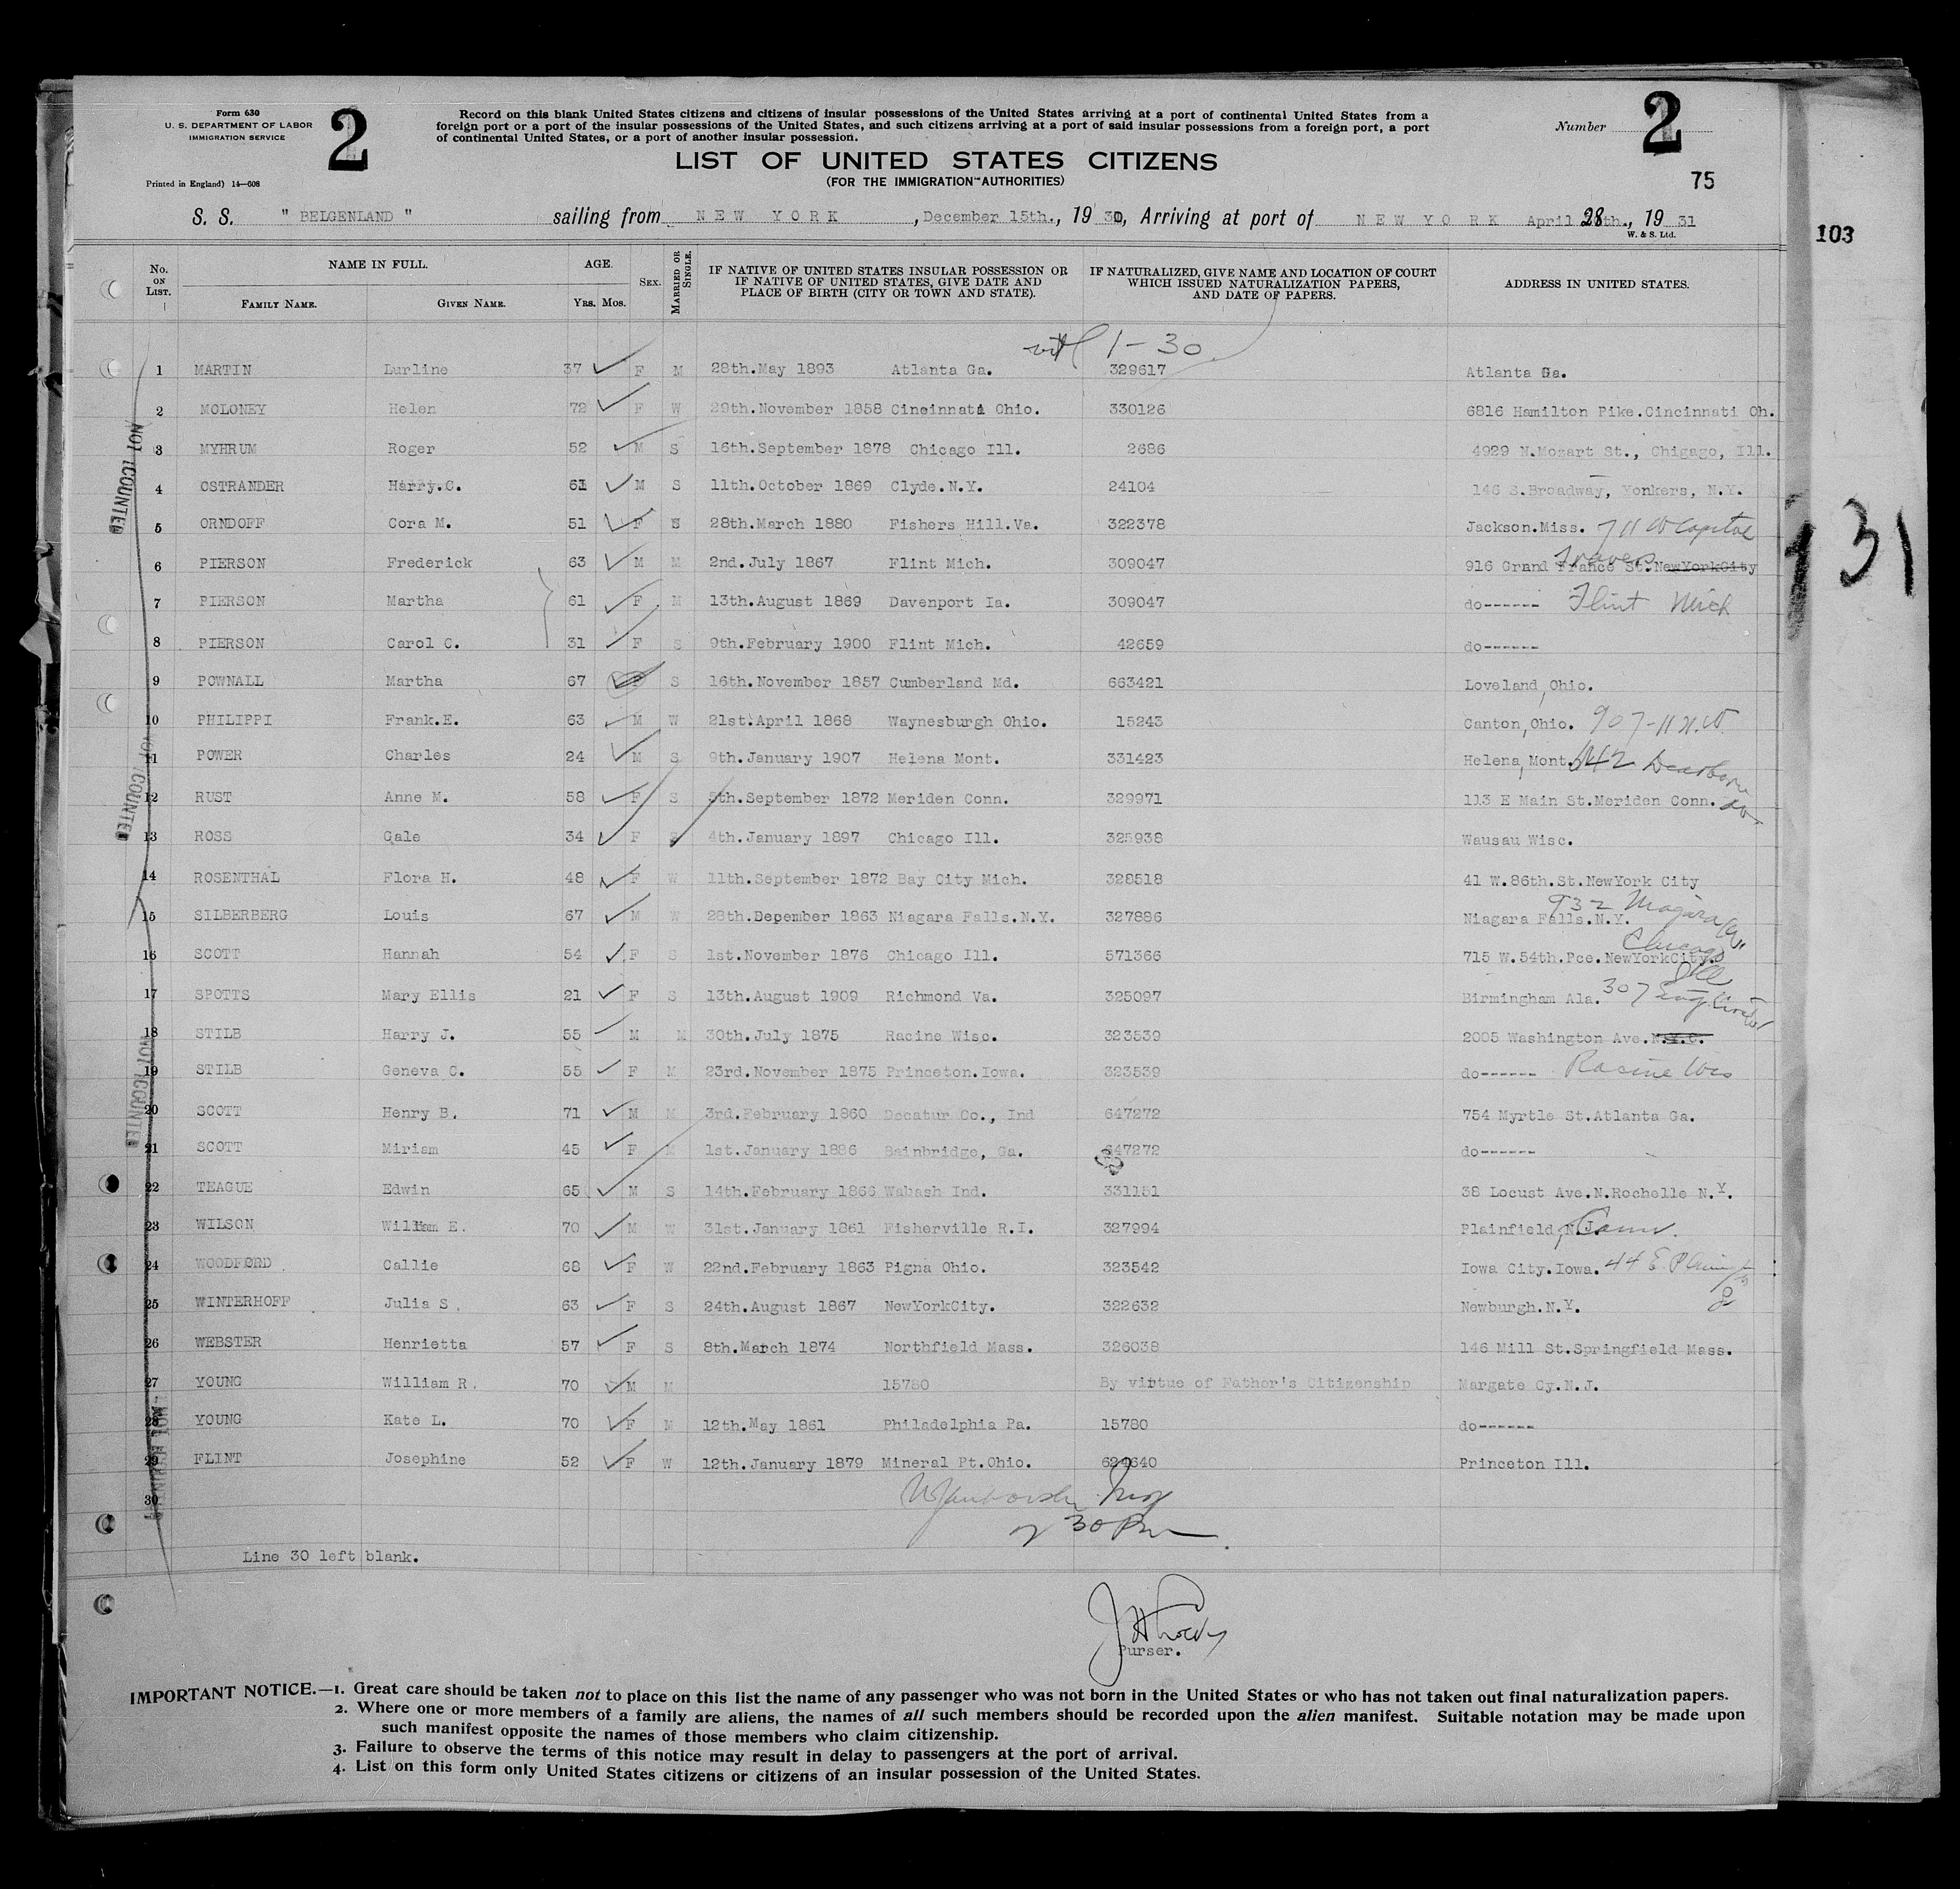 Form 630
U. S. DEPARTMENT OF LABOR
IMMIGRATION SERVICE
2
Record on this blank United States citizens and citizens of insular possessions of the United States arriving at a port of continental United States from a
foreign port or a port of the insular possessions of the United States, and such citizens arriving at a port of said insular possessions from a foreign port, a port
of continental United States, or a port of another insular possession.
Number 2
LIST OF UNITED STATES CITIZENS
(FOR THE IMMIGRATION AUTHORITIES)
Printed in England) 14—608
75
S. S. " BELGENLAND " sailing from NEW YORK, December 15th., 1930, Arriving at port of NEW YORK April 28th., 1931
W. & S. Ltd.
103
No. ON LIST. NAME IN FULL. FAMILY NAME. GIVEN NAME. AGE. YRS. MOS. SEX. MARRIED OR SINGLE. IF NATIVE OF UNITED STATES INSULAR POSSESSION OR IF NATIVE OF UNITED STATES, GIVE DATE AND PLACE OF BIRTH (CITY OR TOWN AND STATE). IF NATURALIZED, GIVE NAME AND LOCATION OF COURT WHICH ISSUED NATURALIZATION PAPERS, AND DATE OF PAPERS. ADDRESS IN UNITED STATES.
1-30
1 MARTIN Lurline 37 F M 28th.May 1893 Atlanta Ga. 329617 Atlanta Ga.
2 MOLONEY Helen 72 F W 29th.November 1858 Cincinnati Ohio. 330126 6816 Hamilton Pike.Cincinnati Oh.
3 MYHRUM Roger 52 M S 16th.September 1878 Chicago Ill. 2686 4929 N.Mozart St., Chigago, Ill.
4 OSTRANDER Harry.C. 61 M S 11th.October 1869 Clyde.N.Y. 24104 146 S.Broadway, Yonkers, N.Y.
5 ORNDOFF Cora M. 51 F S 28th.March 1880 Fishers Hill.Va. 322378 Jackson.Miss. 711 W Capitol
6 PIERSON Frederick 63 M M 2nd.July 1867 Flint Mich. 309047 916 Grand France St.NewYorkCity Travers
7 PIERSON Martha 61 F M 13th.August 1869 Davenport Ia. 309047 do------ Flint Mich
8 PIERSON Carol C. 31 F S 9th.February 1900 Flint Mich. 42659 do------
9 POWNALL Martha 67 F S 16th.November 1857 Cumberland Md. 663421 Loveland, Ohio.
10 PHILIPPI Frank.E. 63 M W 21st.April 1868 Waynesburgh Ohio. 15243 Canton, Ohio. 907-11 N.W.
11 POWER Charles 24 M S 9th.January 1907 Helena Mont. 331423 Helena, Mont. 642 Dearborn
12 RUST Anne M. 58 F S 5th.September 1872 Meriden Conn. 329971 113 E Main St.Meriden Conn.
13 ROSS Gale 34 F S 4th.January 1897 Chicago Ill. 325938 Wausau Wisc.
14 ROSENTHAL Flora H. 48 F W 11th.September 1872 Bay City Mich. 328518 41 W.86th.St.NewYork City
15 SILBERBERG Louis 67 M W 28th.Depember 1863 Niagara Falls.N.Y. 327886 Niagara Falls.N.Y. 932 Niagara
16 SCOTT Hannah 54 F S 1st.November 1876 Chicago Ill. 571366 715 W.54th.Pce.NewYorkCity. Chicago Ill
17 SPOTTS Mary Ellis 21 F S 13th.August 1909 Richmond Va. 325097 Birmingham Ala. 307
18 STILB Harry J. 55 M M 30th.July 1875 Racine Wisc. 323539 2005 Washington Ave.N.Y.C.
19 STILB Geneva C. 55 F M 23rd.November 1875 Princeton.Iowa. 323539 do------ Racine Wis
20 SCOTT Henry B. 71 M M 3rd.February 1860 Decatur Co., Ind 647272 754 Myrtle St.Atlanta Ga.
21 SCOTT Miriam 45 F M 1st.January 1886 Bainbridge, Ga. 647272 do------
22 TEAGUE Edwin 65 M S 14th.February 1866 Wabash Ind. 331151 38 Locust Ave.N.Rochelle N.Y.
23 WILSON William E. 70 M W 31st.January 1861 Fisherville R.I. 327994 Plainfield, N.J. Conn.
24 WOODFORD Callie 68 F W 22nd.February 1863 Piqna Ohio. 323542 Iowa City.Iowa. 44 E.
25 WINTERHOFF Julia S. 63 F S 24th.August 1867 NewYorkCity. 322632 Newburgh.N.Y.
26 WEBSTER Henrietta 57 F S 8th.March 1874 Northfield Mass. 326038 146 Mill St.Springfield Mass.
27 YOUNG William R. 70 M M 15780 By virtue of Father's Citizenship Margate Cy.N.J.
28 YOUNG Kate L. 70 F M 12th.May 1861 Philadelphia Pa. 15780 do------
29 FLINT Josephine 52 F W 12th.January 1879 Mineral Pt.Ohio. 624640 Princeton Ill.
30
30 Pm
Line 30 left blank.
Purser.
131
IMPORTANT NOTICE.—1. Great care should be taken not to place on this list the name of any passenger who was not born in the United States or who has not taken out final naturalization papers.
2. Where one or more members of a family are aliens, the names of all such members should be recorded upon the alien manifest. Suitable notation may be made upon
such manifest opposite the names of those members who claim citizenship.
3. Failure to observe the terms of this notice may result in delay to passengers at the port of arrival.
4. List on this form only United States citizens or citizens of an insular possession of the United States.